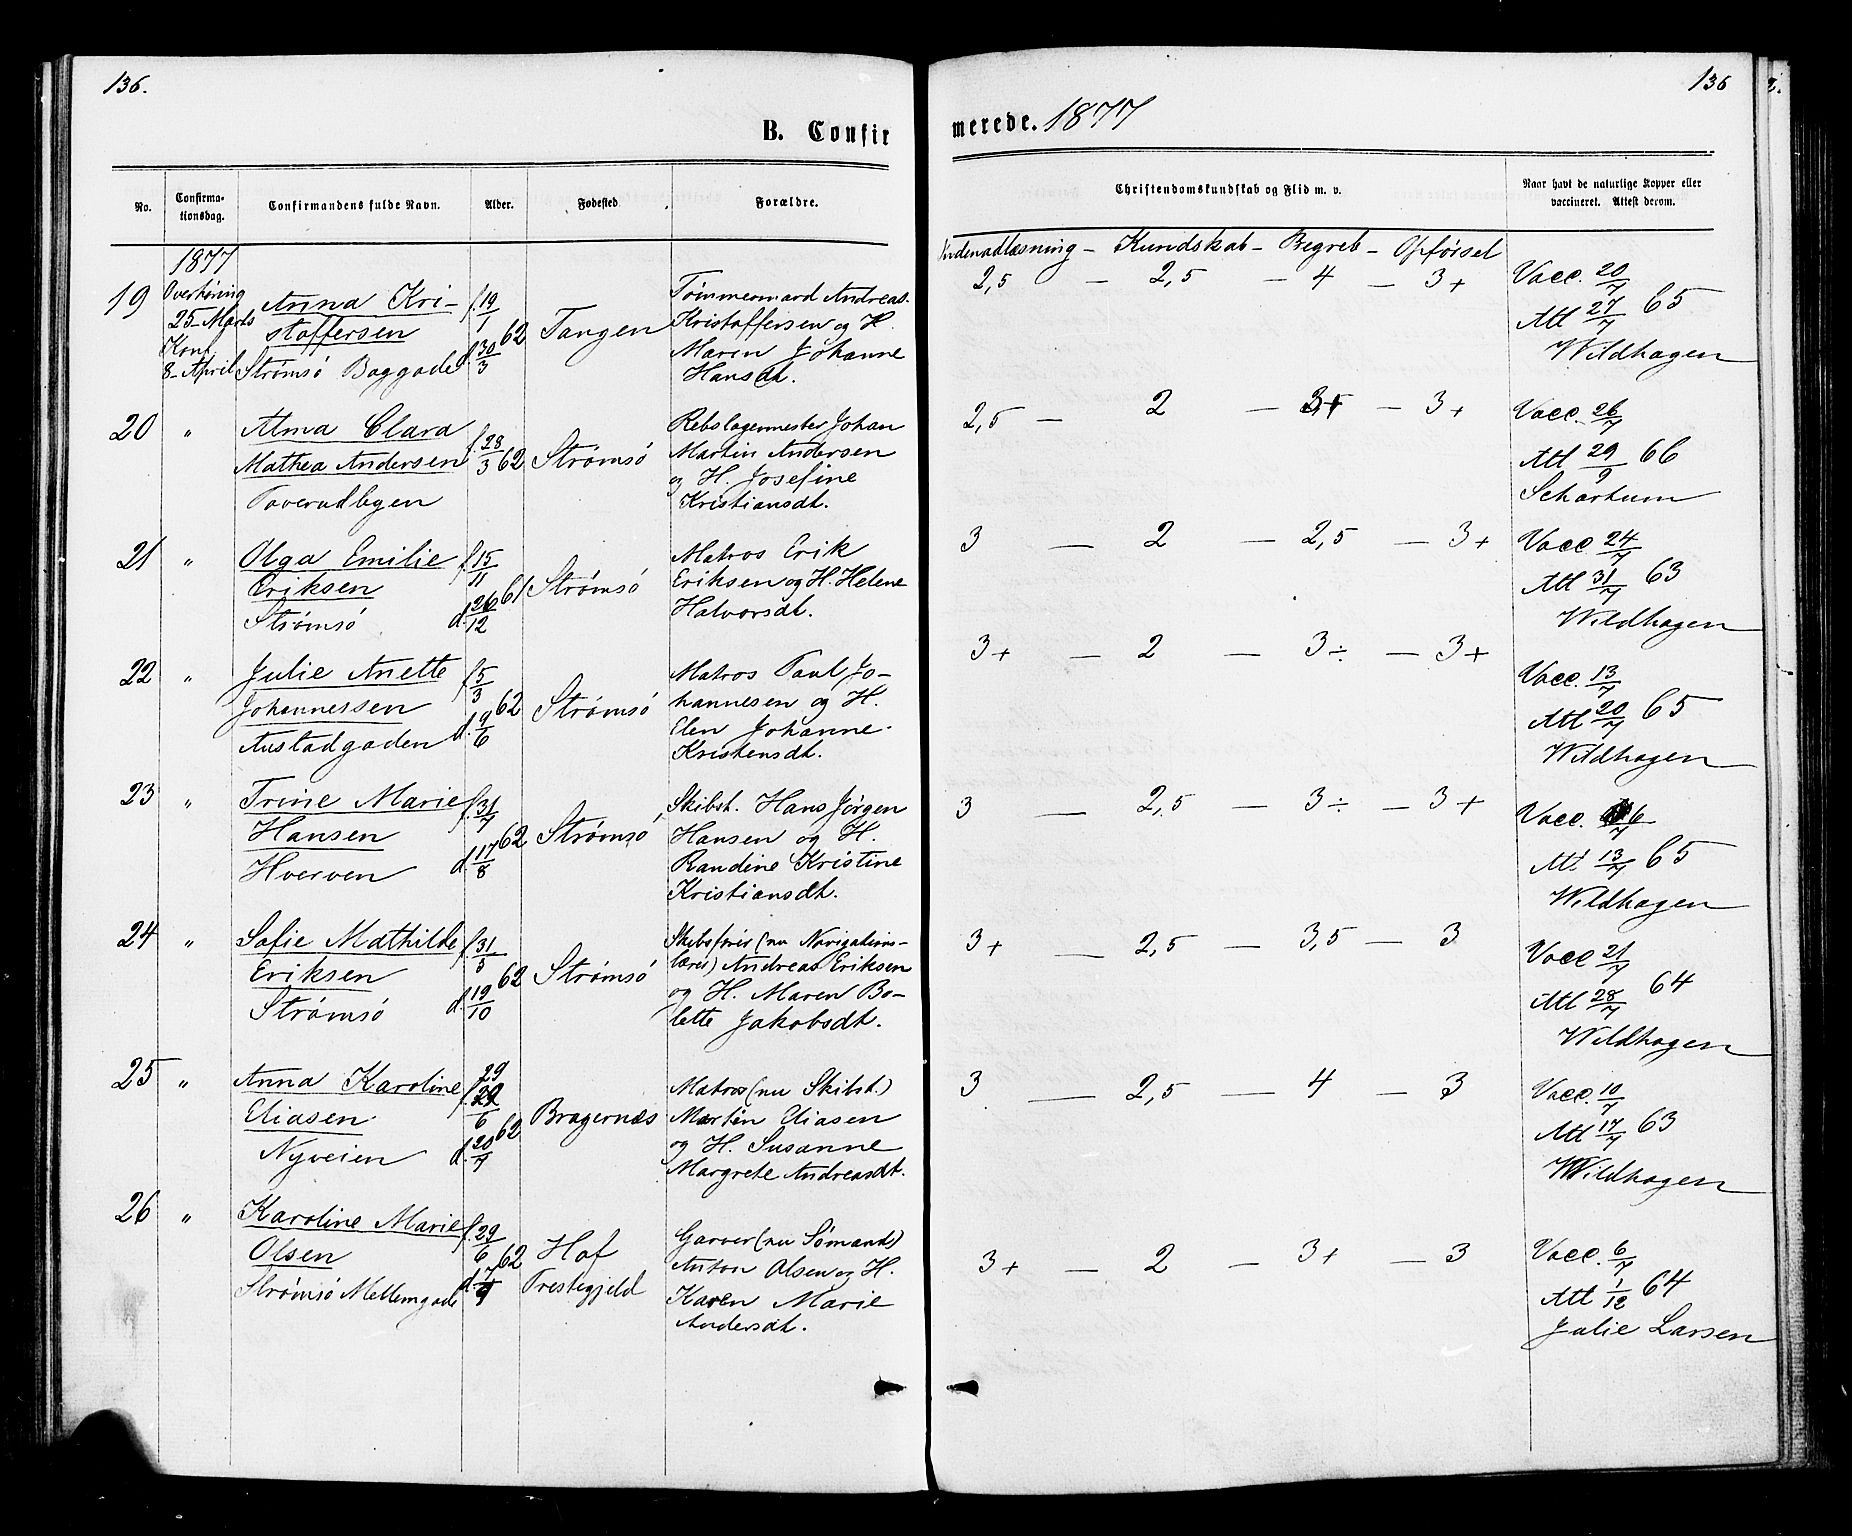 136.
136
B. Confir
merede. 1877
No.
Confirma-
tionsdag.
Confirmandens fulde Navn.
Alder.
Fødested
Forældre.
Christendomskundskab og Flid m. v.
Naar havt de naturlige Kopper eller
vaccineret. Attest derom.
1877
Indenadlæsning – Kundskab – Begreb – Opførsel
19
Overhøring
25 Marts
Konf.
8 April
Anna Kri-
stoffersen
Strømsø Baggade
f. 19/1
d. 30/3 62
Tangen
Tømmermand Andreas
Kristoffersen og H.
Maren Johanne
Hansdt.
2,5 – 2,5 – 4 – 3+
Vacc. 20/7
Att 27/7 65
Wildhagen
20 "
Alma Clara
Mathea Andersen
f. 28/3 62
Strømsø
Rebslagermester Johan
Martin Andersen
og H. Josefine
Kristiansdt.
2,5 – 2 – – 3+
Vacc. 26/7
Att 29/9 66
Schartum
21 "
Olga Emilie
Eriksen
Strømsø
f. 15/11
d. 26/12 61
Strømsø
Matros Erik
Eriksen og H. Helene
Halvorsdt.
3 – 2 – 2,5 – 3+
Vacc 24/7
Att 31/7 63
Wildhagen
22 "
Julie Anette
Johannessen
Austadgaden
f. 5/3
d. 9/6 62
Strømsø
Matros Paul Jo-
hannesen og H.
Elen Johanne
Kristensdt.
3+ – 2 – 3÷ – 3+
Vacc. 13/7
Att 20/7 65
Wildhagen
23 "
Trine Marie
Hansen
Hverven
f. 31/7
d. 17/8 62
Strømsø
Skibst. Hans Jørgen
Hansen og H.
Randine Kristine
Kristiansdt.
3 – 2,5 – 3÷ – 3+
Vacc. 6/7
Att 13/7 65
Wildhagen
24 "
Sofie Mathilde
Eriksen
Strømsø
f. 31/5
d. 19/10 62
Strømsø
Skibsfører (nu Navigations-
lærer) Andreas Eriksen
og H. Maren Bo-
lette Jakobsdt.
3+ – 2,5 – 3,5 – 3
Vacc 21/7
Att 28/7 64
Wildhagen
25 "
Anna Karoline
Eliasen
Nyveien
f. 29/6
d. 20/7 62
Bragernæs
Matros (nu Skibst.)
Martin Eliasen
og H. Susanne
Margrete Andreasdt.
3 – 2,5 – 4 – 3
Vacc. 10/7
Att 17/7 63
Wildhagen
26 "
Karoline Marie
Olsen
Strømsø Mellemgade
f. 29/6 62
Hof
Prestegjeld
Garver (nu Sømand)
Anton Olsen og H.
Karen Marie
Andersdt.
3+ – 2 – 3+ – 3
Vacc. 6/7
Att 1/12 64
Julie Larsen